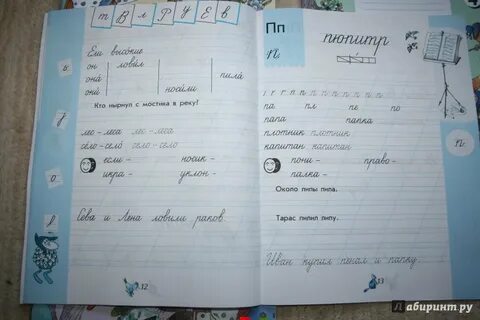 т В л Р У Е в
Ели высокие
он ловил
она пила
они носили
Кто нырнул с мостика в реку?
лес - леса лес - леса
село - сёла село - село
если - носик -
икра - уклон -
Сева и Лена ловили раков.
12
Пп
пюпитр
п
па пл пе по
папа папка
плотник плотник
капитан капитан
пони - право -
палка -
Около липы пила.
Тарас пилил липу.
Иван купил пенал и папку.
13
Лабиринт.ру